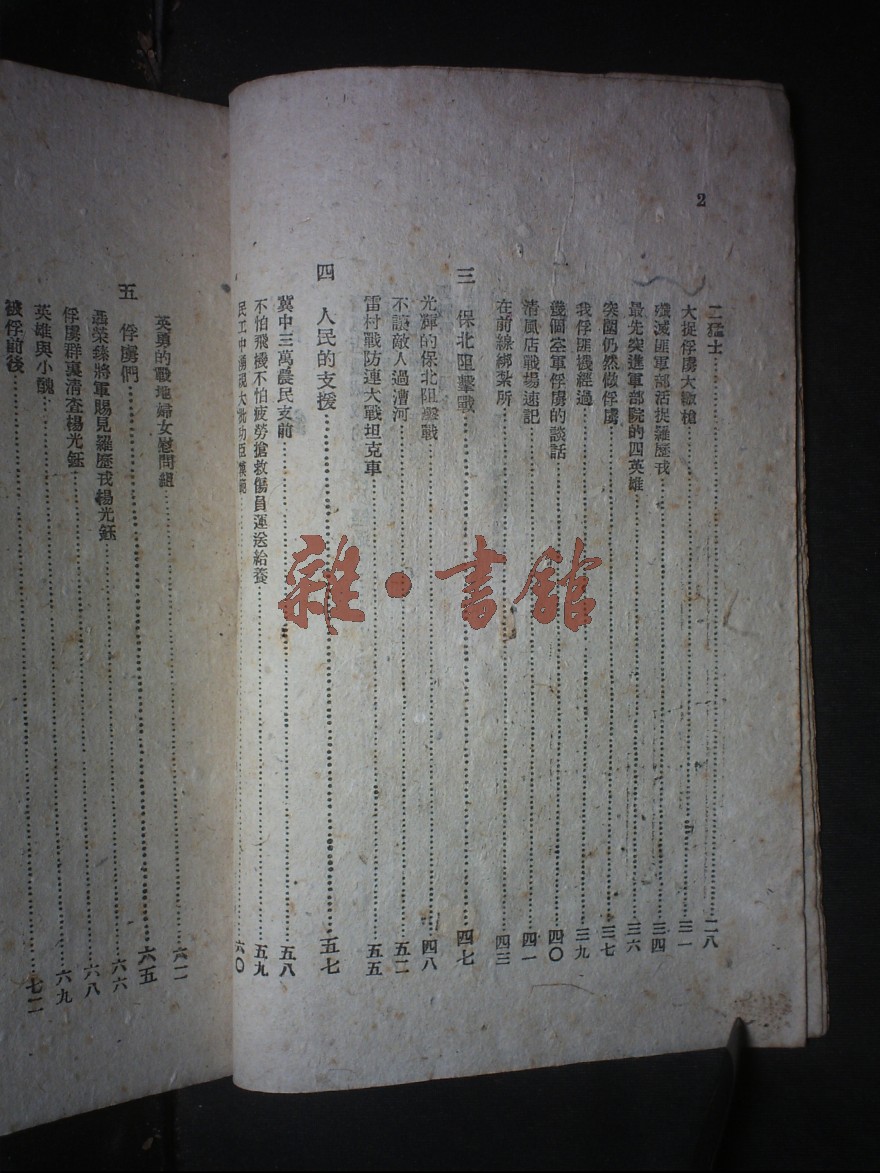 2
二猛士……二八
大捉俘虜大繳槍……三一
殲滅匪軍部活捉羅歷戎……三四
最先突進軍部院的四英雄……三六
突圍仍然做俘虜……三七
我俘匪機經過……三九
幾個空軍俘虜的談話……四〇
清風店戰場速記……四一
在前線綁紮所……四三
三 保北阻擊戰……四七
光輝的保北阻擊戰……四八
不讓敵人過漕河……五二
雷村戰防連大戰坦克車……五五
四 人民的支援……五七
冀中三萬農民支前……五八
不怕飛機不怕疲勞搶救傷員運送給養……五九
民工中湧現大批功臣模範……六〇
英勇的戰地婦女慰問組……六二
五 俘虜們……六五
聶榮臻將軍賜見羅歷戎楊光鈺……六六
俘虜群裏清查楊光鈺……六八
英雄與小醜……六九
被俘前後……七二
雜·書館